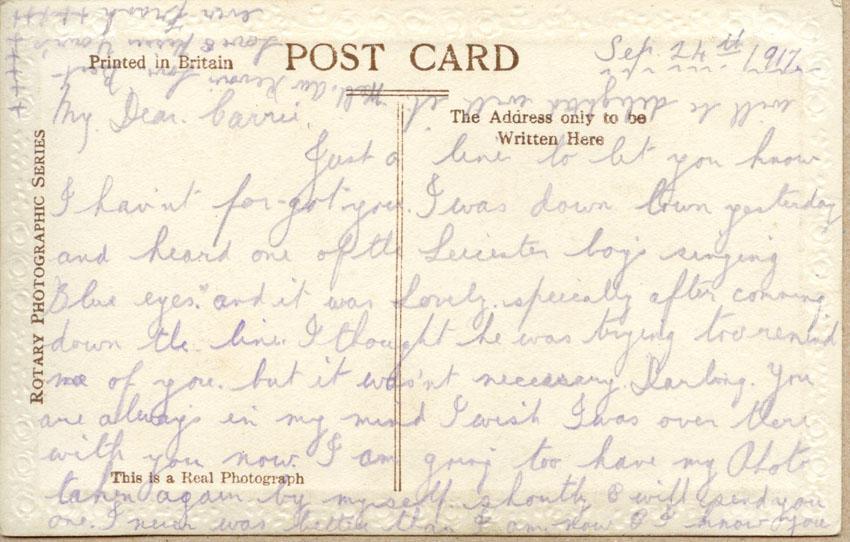 Printed in Britain
POST CARD
The Address only to be
Written Here
ROTARY PHOTOGRAPHIC SERIES
This is a Real Photograph
Sep. 24th 1917
My Dear Carrie,
Just a line to let you know
I hav'nt for-got you. I was down town yesterday
and heard one of the Leicester boys singing
Blue eyes" and it was lovely. specially after comming
down the line. I thought he was trying too remind
me of you. but it was'nt necessary. Darling. You
are always in my mind I wish I was over there
with you now. I am going too have my Photo
taken again by myself shortly & will send you
one. I never was better than I am now & I know you
will be delighted with it. Well. Au Revoir
Love & Kisses
ever Frank ++++